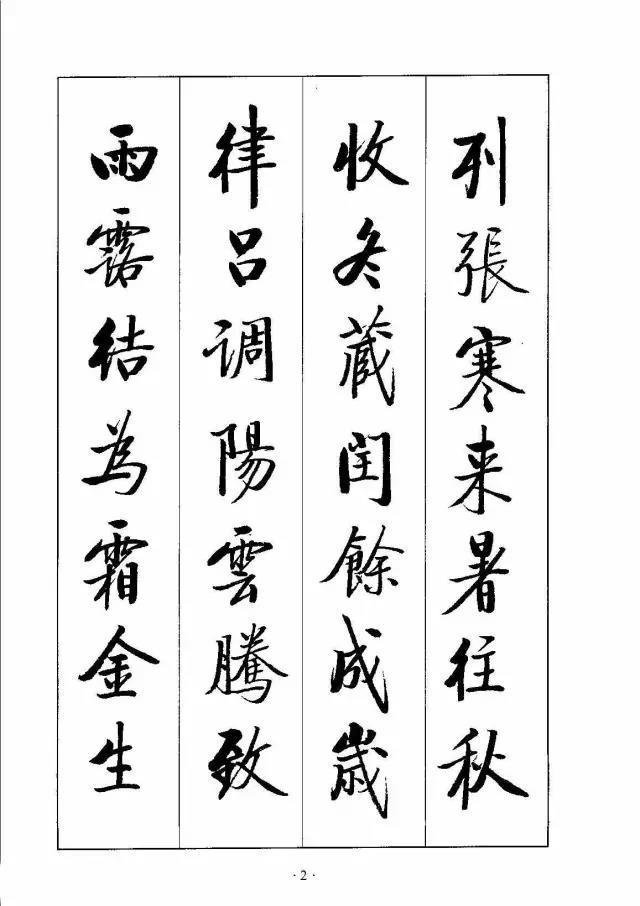 列張寒来暑往秋
收冬蔵閏餘成歲
律吕调陽雲騰致
雨露结為霜金生
·2·